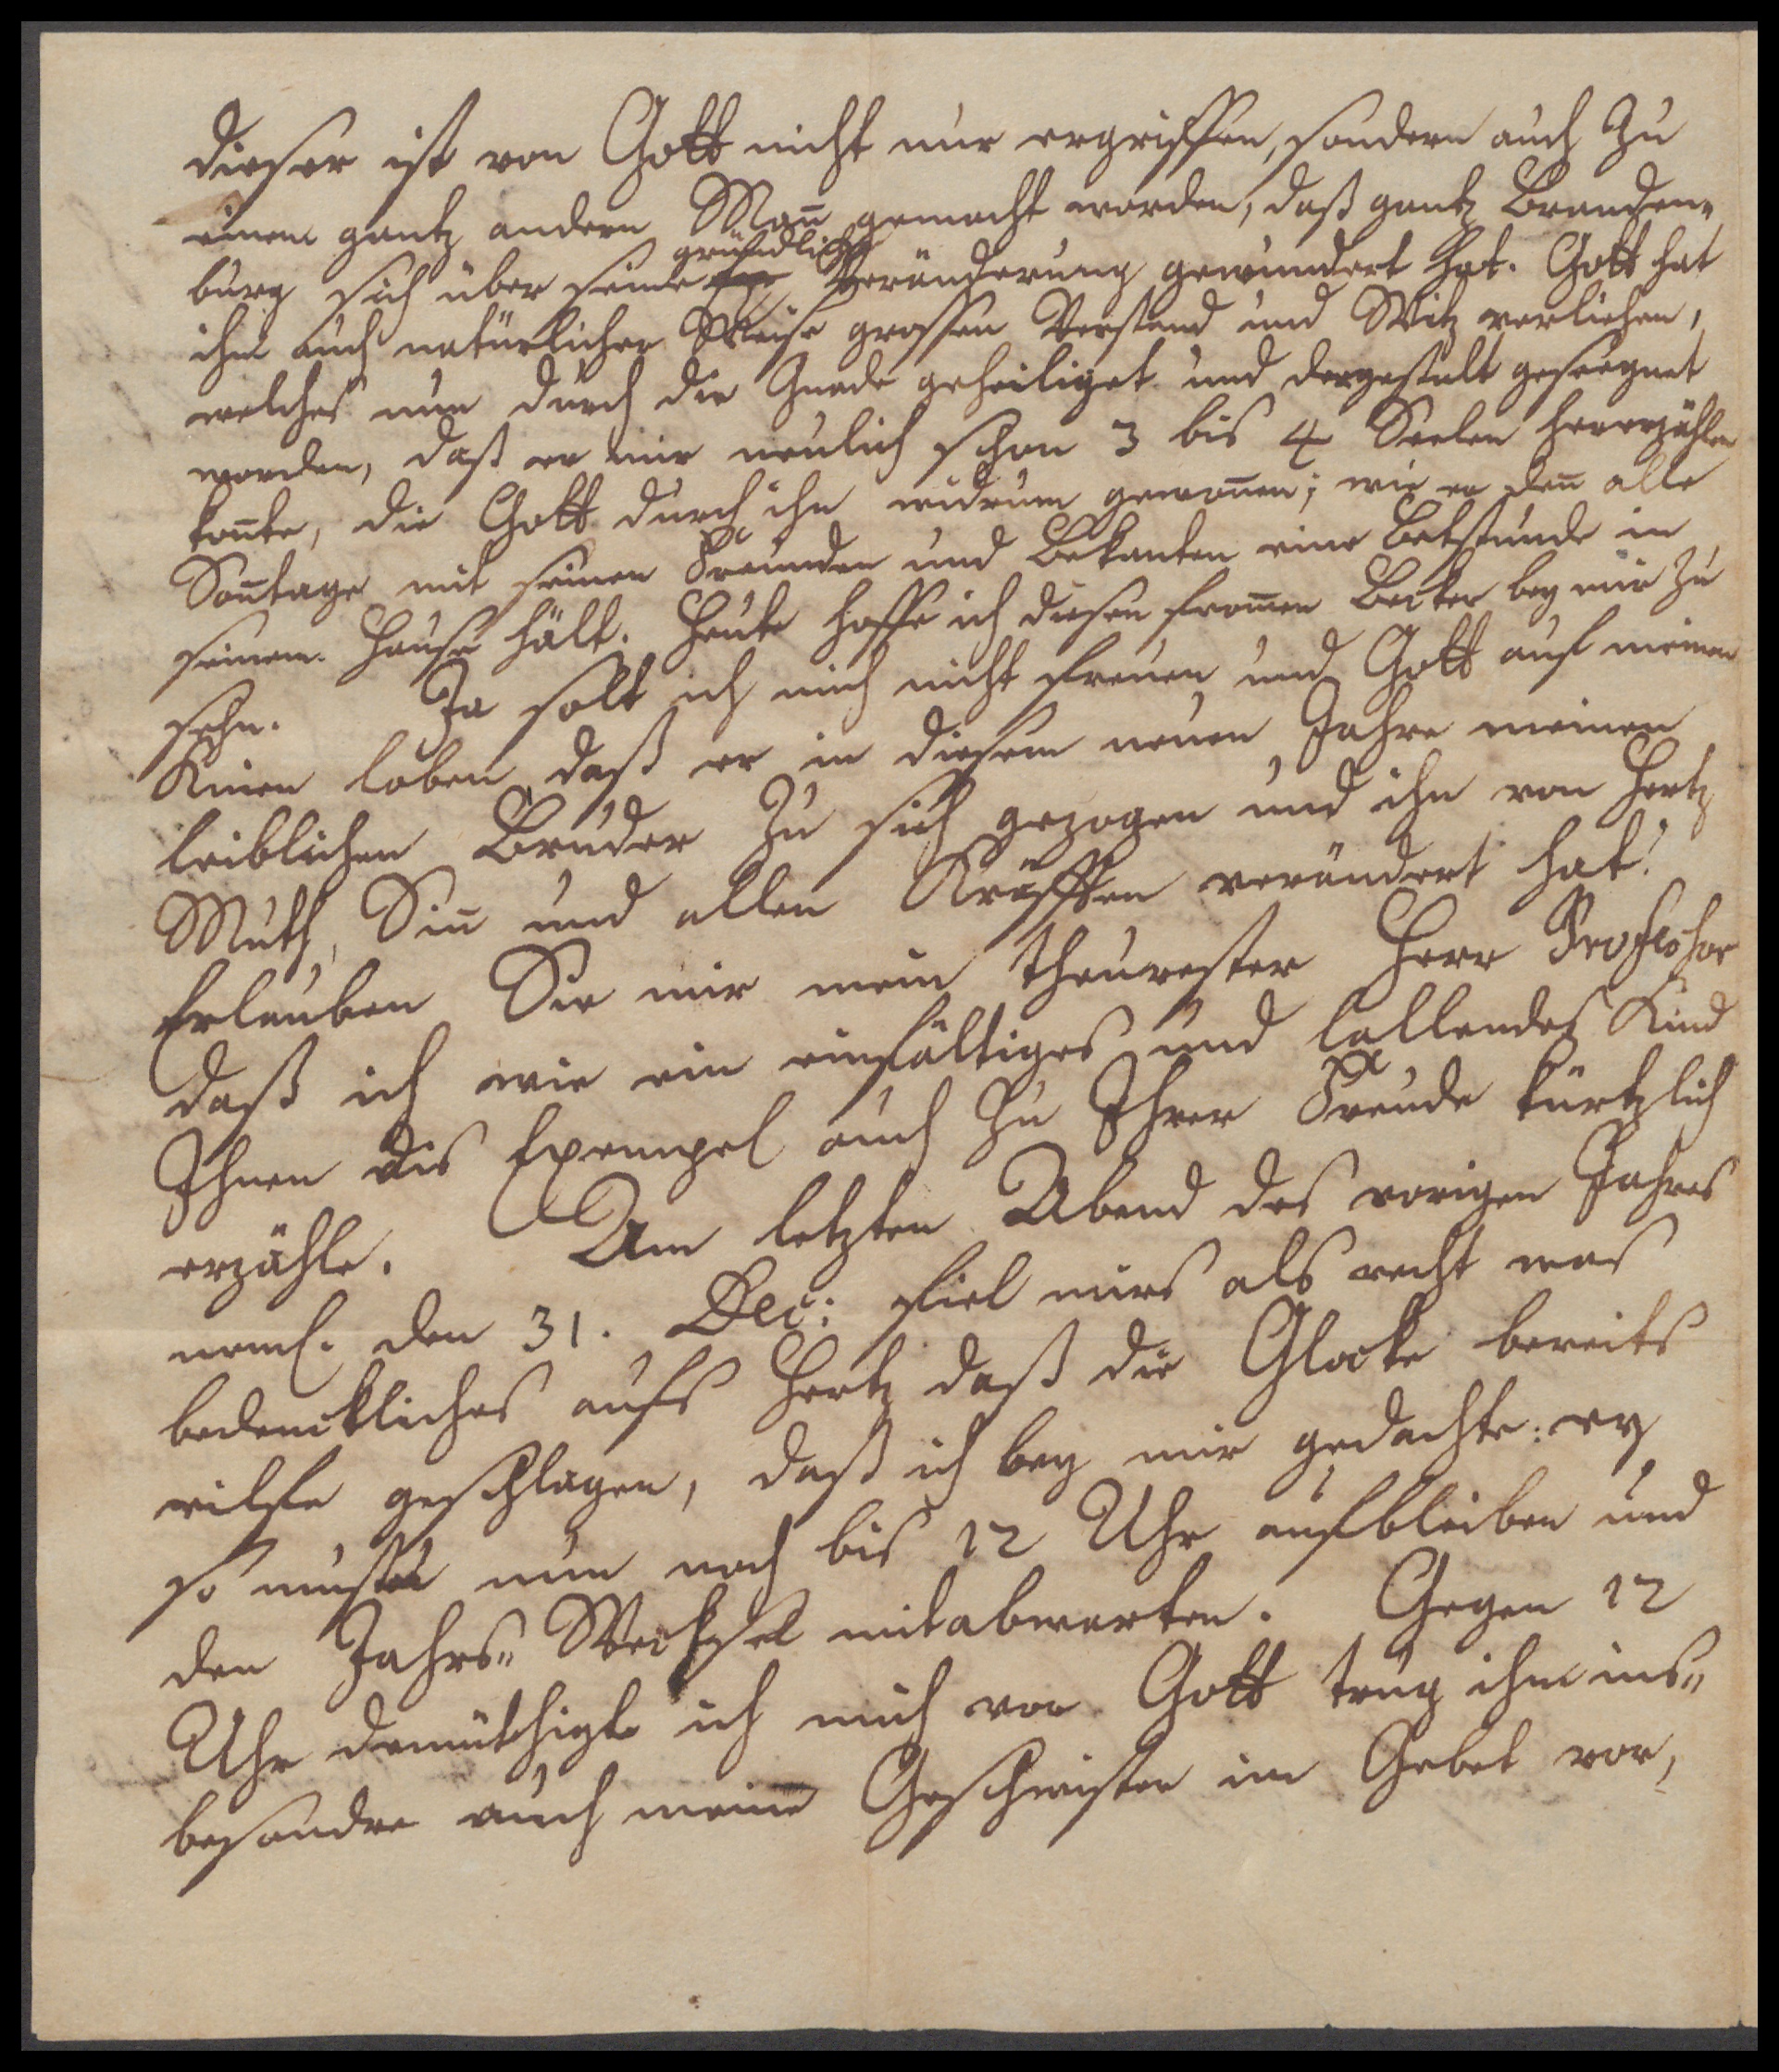 dieser ist von Gott nicht nur ergriffen, sondern auch zu
einem gantz andern Mañ gemacht worden, daß gantz Branden-
burg sich über seine gründliche Veränderung gewundert hat. Gott hat
ihm auch natürlicher Weise grossen Verstand und Witz verliehen,
welches nun durch die Gnade geheiliget und dergestalt gesegnet
worden, daß er mir neulich schon 3 bis 4 Seelen hererzählen
koñte, die Gott durch ihn widrum gewoñen; wie er deñ alle
Soñtage mit seinen Freunden und Bekanten eine Betstunde in
seinem Hause hält. Heute hoffe ich diesen from̃en Becker bey mir zu
sehn. Ja solt ich mich nicht freuen und Gott auf meinen
Knien loben, daß er in diesem neuen Jahre meinen
leiblichen Bruder zu sich gezogen und ihn von Hertz
Muth, Siñ und allen Kräfften verändert hat!
Erlauben Sie mir mein theurester Herr Professor
daß ich wie ein einfältiges und lallendes Kind
Ihnen dis Exempel auch zu Ihrer Freude kürtzlich
erzähle. Am letzten Abend des vorigen Jahres
neml. den 31. Dec: fiel mirs als recht was
bedenckliches aufs Hertz daß die Glocke bereits
eilfe geschlagen, daß ich bey mir gedachte: ey
so mustu nun noch bis 12 Uhr aufbleiben und
den Jahrs- Wechsel mitabwarten. Gegen 12
Uhr demüthigte ich mich vor Gott trug ihm ins-
besondre auch meine Geschwister im Gebet vor,